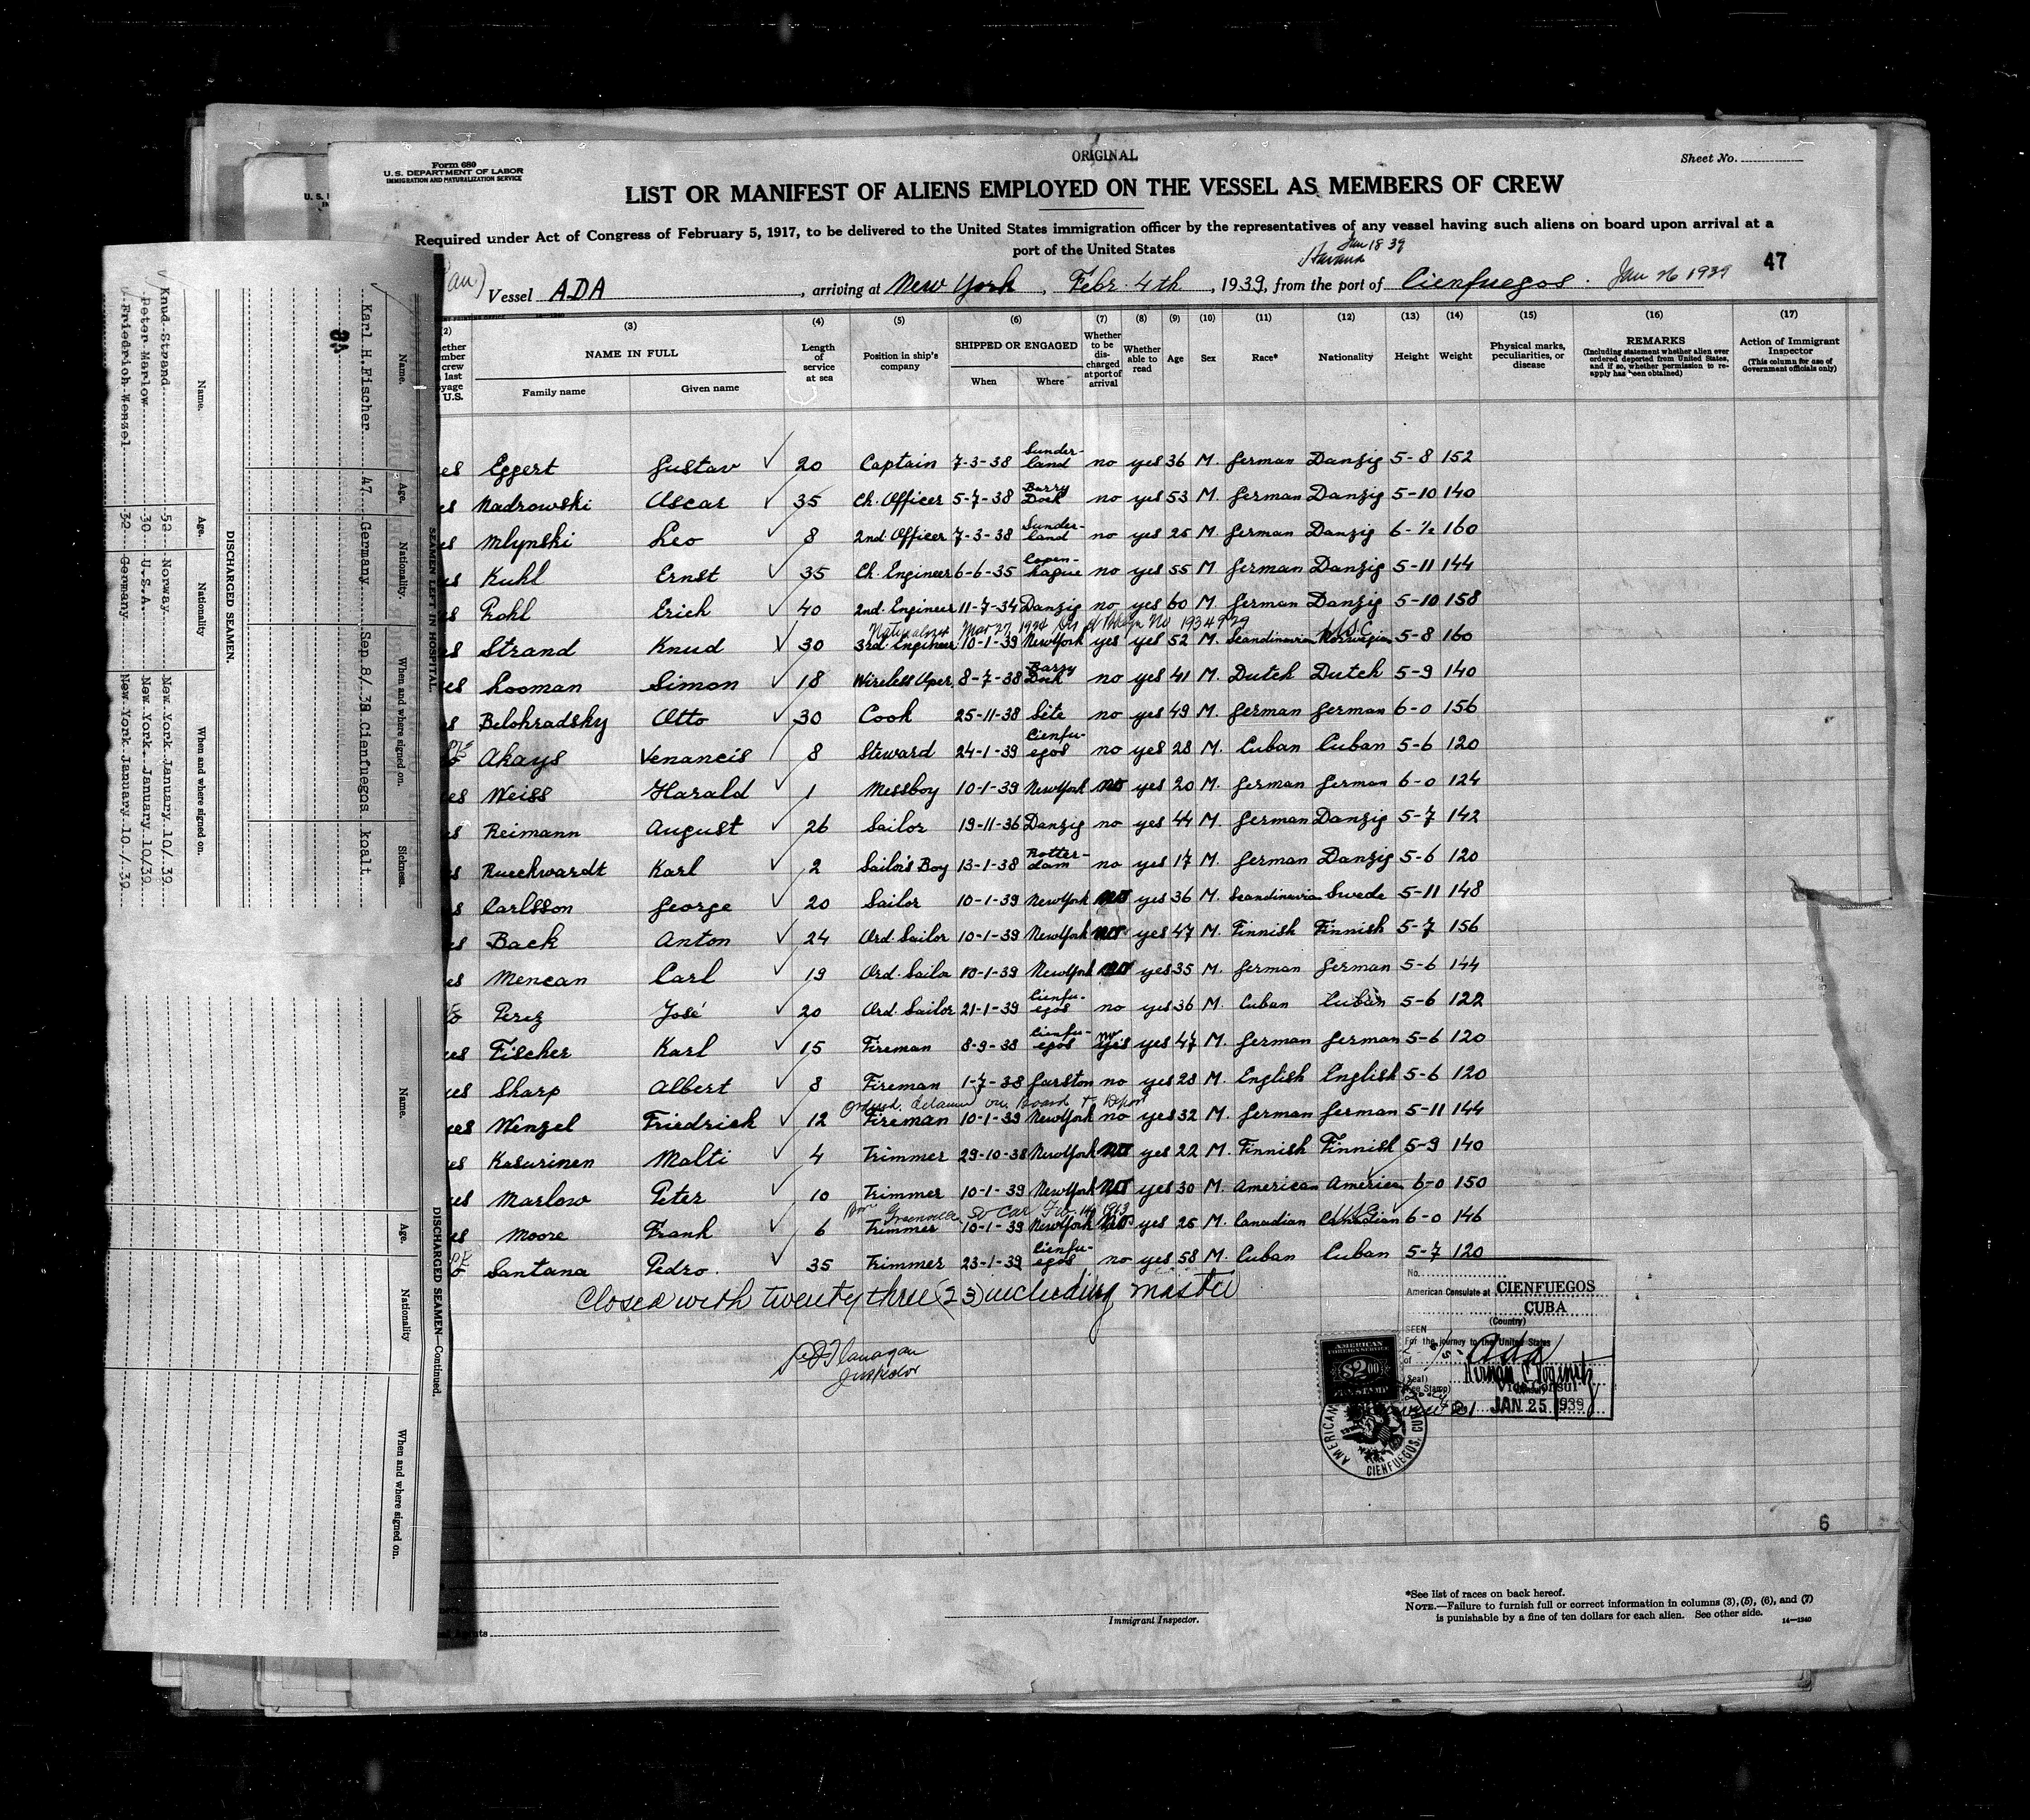 Form 680
U.S. DEPARTMENT OF LABOR
IMMIGRATION AND NATURALIZATION SERVICE
ORIGINAL
Sheet No.
LIST OR MANIFEST OF ALIENS EMPLOYED ON THE VESSEL AS MEMBERS OF CREW
Required under Act of Congress of February 5, 1917, to be delivered to the United States immigration officer by the representatives of any vessel having such aliens on board upon arrival at a
port of the United States
Havana Jan 18 39
47
Vessel ADA, arriving at New York, Febr. 4th, 1939, from the port of Cienfuegos. Jan 26 1939
(2) (3) (4) (5) (6) (7) (8) (9) (10) (11) (12) (13) (14) (15) (16) (17)
NAME IN FULL
Family name Given name
Length of service at sea
Position in ship's company
SHIPPED OR ENGAGED
When Where
Whether to be discharged at port of arrival
Whether able to read
Age Sex Race* Nationality Height Weight
Physical marks, peculiarities, or disease
REMARKS
(Including statement whether alien ever ordered deported from United States, and if so, whether permission to reapply has been obtained)
Action of Immigrant Inspector
(This column for use of Government officials only)
es Eggert Gustav 20 Captain 7-3-38 Sunderland no yes 36 M. German Danzig 5-8 152
es Nadrowski Oscar 35 Ch. Officer 5-7-38 Barry Dock no yes 53 M. German Danzig 5-10 140
es Mlynski Leo 8 2nd. Officer 7-3-38 Sunderland no yes 25 M. German Danzig 6-½ 160
es Kuhl Ernst 35 Ch. Engineer 6-6-35 Copenhague no yes 55 M German Danzig 5-11 144
es Prohl Erich 40 2nd. Engineer 11-7-34 Danzig no yes 60 M German Danzig 5-10 158
Naturalized Mar 27 1924 No 1934929 USC
es Strand Knud 30 3rd. Engineer 10-1-39 New York yes yes 52 M. Scandinavian Norwegian 5-8 160
es Looman Simon 18 Wireless Oper. 8-7-38 Barry Dock no yes 41 M. Dutch Dutch 5-9 140
es Belohradsky Otto 30 Cook 25-11-38 Séte no yes 49 M. German German 6-0 156
Akays Venancis 8 Steward 24-1-39 Cienfuegos no yes 28 M. Cuban Cuban 5-6 120
es Weiss Harald 1 Messboy 10-1-39 New York no yes 20 M. German German 6-0 124
es Reimann August 26 Sailor 19-11-36 Danzig no yes 44 M. German Danzig 5-7 142
es Rueckwardt Karl 2 Sailor's Boy 13-1-38 Rotterdam no yes 17 M. German Danzig 5-6 120
es Carlsson George 20 Sailor 10-1-39 New York no yes 36 M. Scandinavia Swede 5-11 148
es Back Anton 24 Ord. Sailor 10-1-39 New York no yes 47 M. Finnish Finnish 5-7 156
es Mencan Carl 19 Ord. Sailor 10-1-39 New York no yes 35 M. German German 5-6 144
Perez José 20 Ord. Sailor 21-1-39 Cienfuegos no yes 36 M. Cuban Cuban 5-6 122
es Fischer Karl 15 Fireman 8-9-38 Cienfuegos no yes yes 47 M. German German 5-6 120
es Sharp Albert 8 Fireman 1-7-38 Garston no yes 28 M. English English 5-6 120
Ordered detained on Board & Deport
es Wenzel Friedrich 12 Fireman 10-1-39 New York no yes 32 M. German German 5-11 144
es Kasurinen Malti 4 Trimmer 29-10-38 New York no yes 22 M. Finnish Finnish 5-9 140
es Marlow Peter 10 Trimmer 10-1-39 New York no yes 30 M. American America 6-0 150
Born Greenville So Car 1913 USC
es Moore Frank 6 Trimmer 10-1-39 New York no yes 25 M. Canadian Canadian 6-0 146
Santana Pedro. 35 Trimmer 23-1-39 Cienfuegos no yes 58 M. Cuban Cuban 5-7 120
Closed with twenty three (23) including master
Flanagan
Inspector
No.
American Consulate at CIENFUEGOS
CUBA
(Country)
SEEN
For the journey to the United States
of Ada
(Seal)
(Fee Stamp)
Vice Consul
JAN 25 1939
AMERICAN
FOREIGN SERVICE
$2.00
AMERICAN
CIENFUEGOS, CUBA
6
Immigrant Inspector.
*See list of races on back hereof.
NOTE.—Failure to furnish full or correct information in columns (3), (5), (6), and (7)
is punishable by a fine of ten dollars for each alien. See other side.
14—1240
SEAMEN LEFT IN HOSPITAL.
Name. Age. Nationality. When and where signed on. Sickness.
Karl H.Fischer 47 Germany Sep.8/.38 Cienfuegos koalt
DISCHARGED SEAMEN.
Name. Age. Nationality When and where signed on.
Knud Strand 52 Norway New York January 10/.39
Peter Marlow 30 U.S.A. New York January 10/39
Friedrich Wenzel 32 Germany New York January 10/.39
DISCHARGED SEAMEN—Continued.
Name. Age. Nationality When and where signed on.